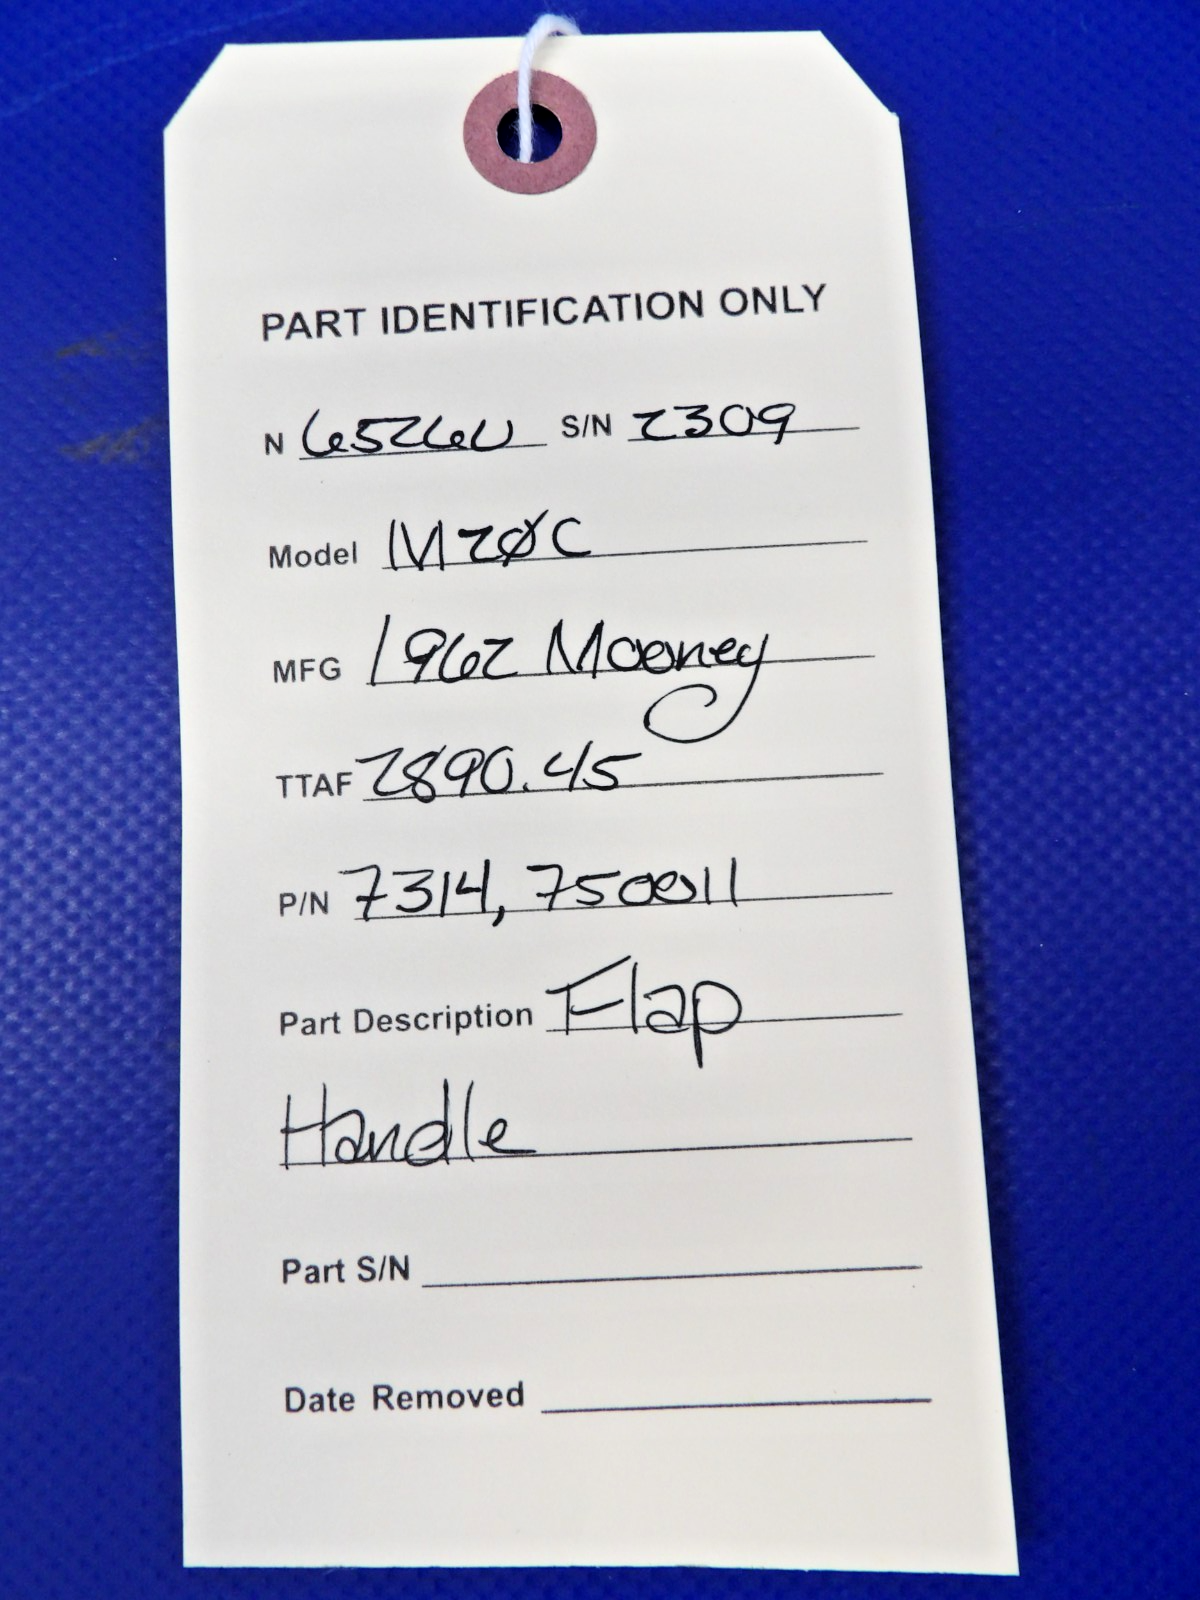 PART IDENTIFICATION ONLY
N 6526U S/N 2309
Model M20C
MFG 1962 Mooney
TTAF 2890.45
P/N 7314, 750011
Part Description Flap
Handle
Part S/N
Date Removed